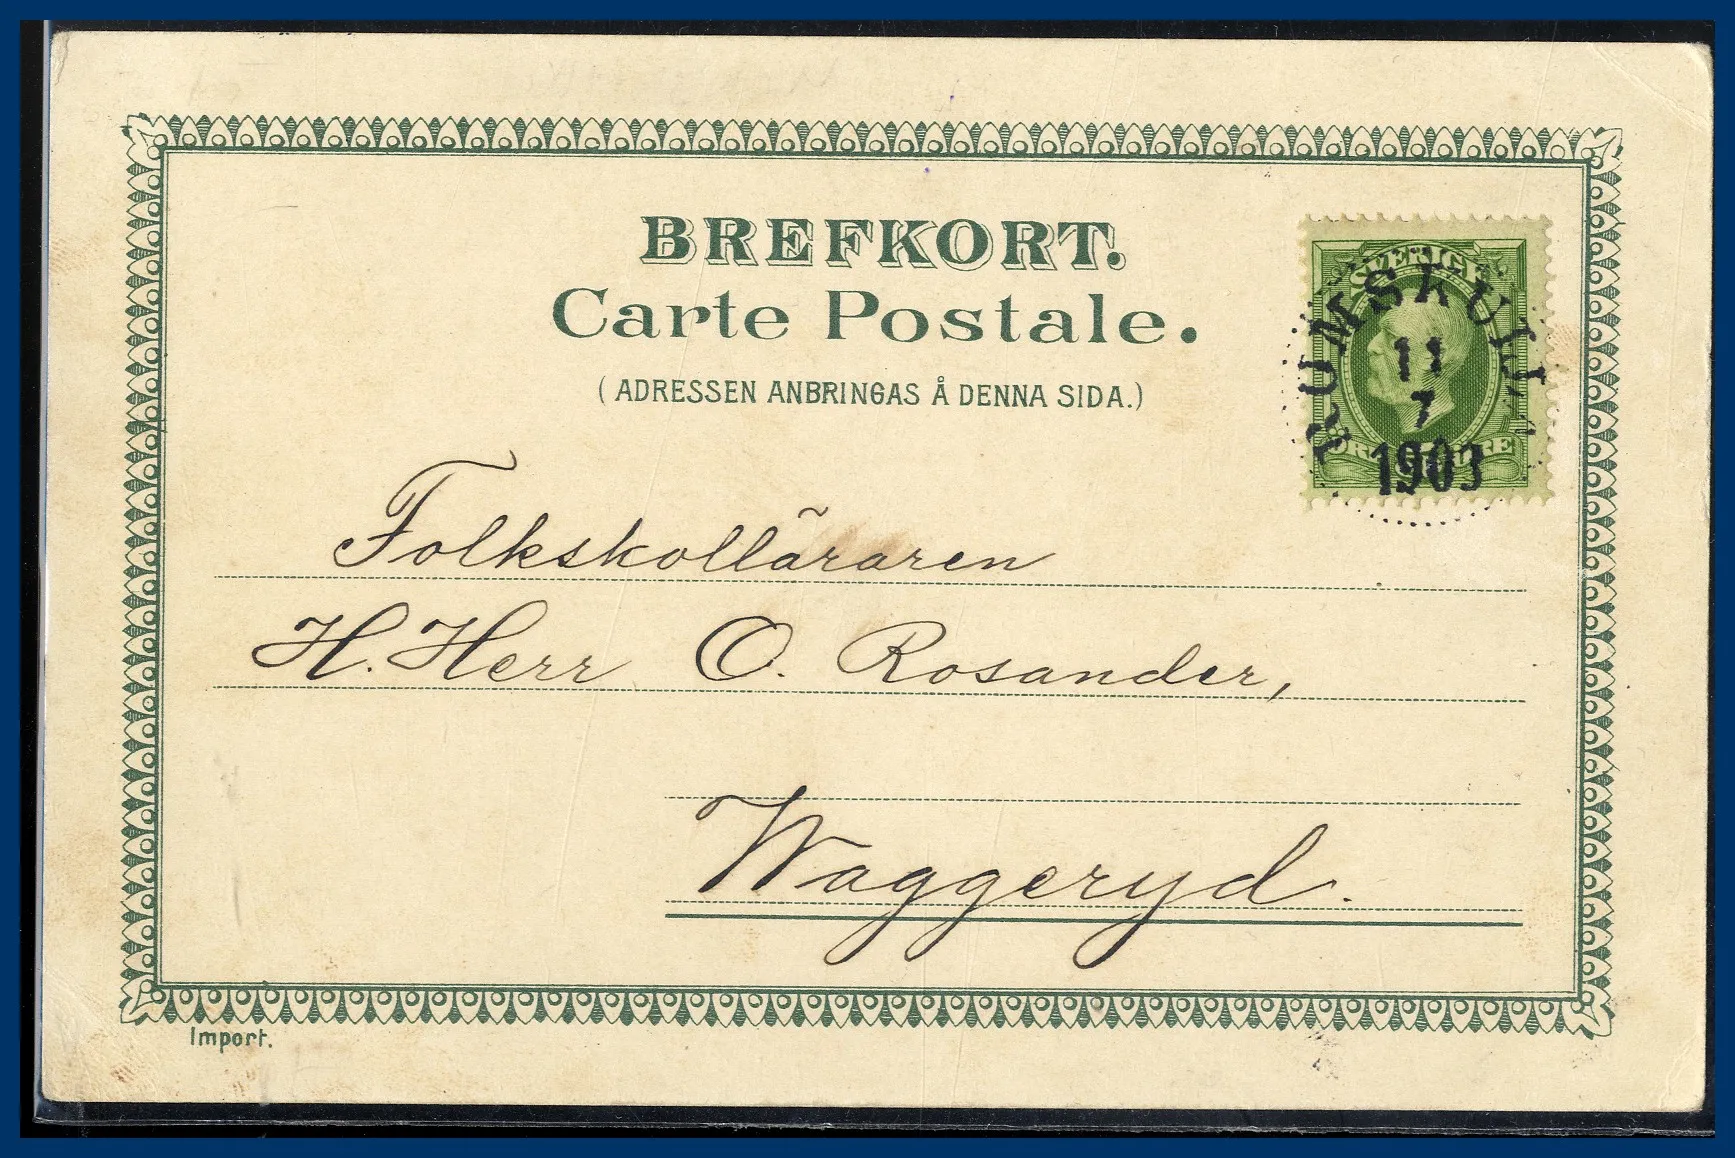 BREFKORT.
Carte Postale.
(ADRESSEN ANBRINGAS Å DENNA SIDA.)
SVERIGE
RUMSKULLA
11
7
1903
ÖRE
Folkskolläraren
H. Herr O. Rosander,
Waggeryd.
Import.